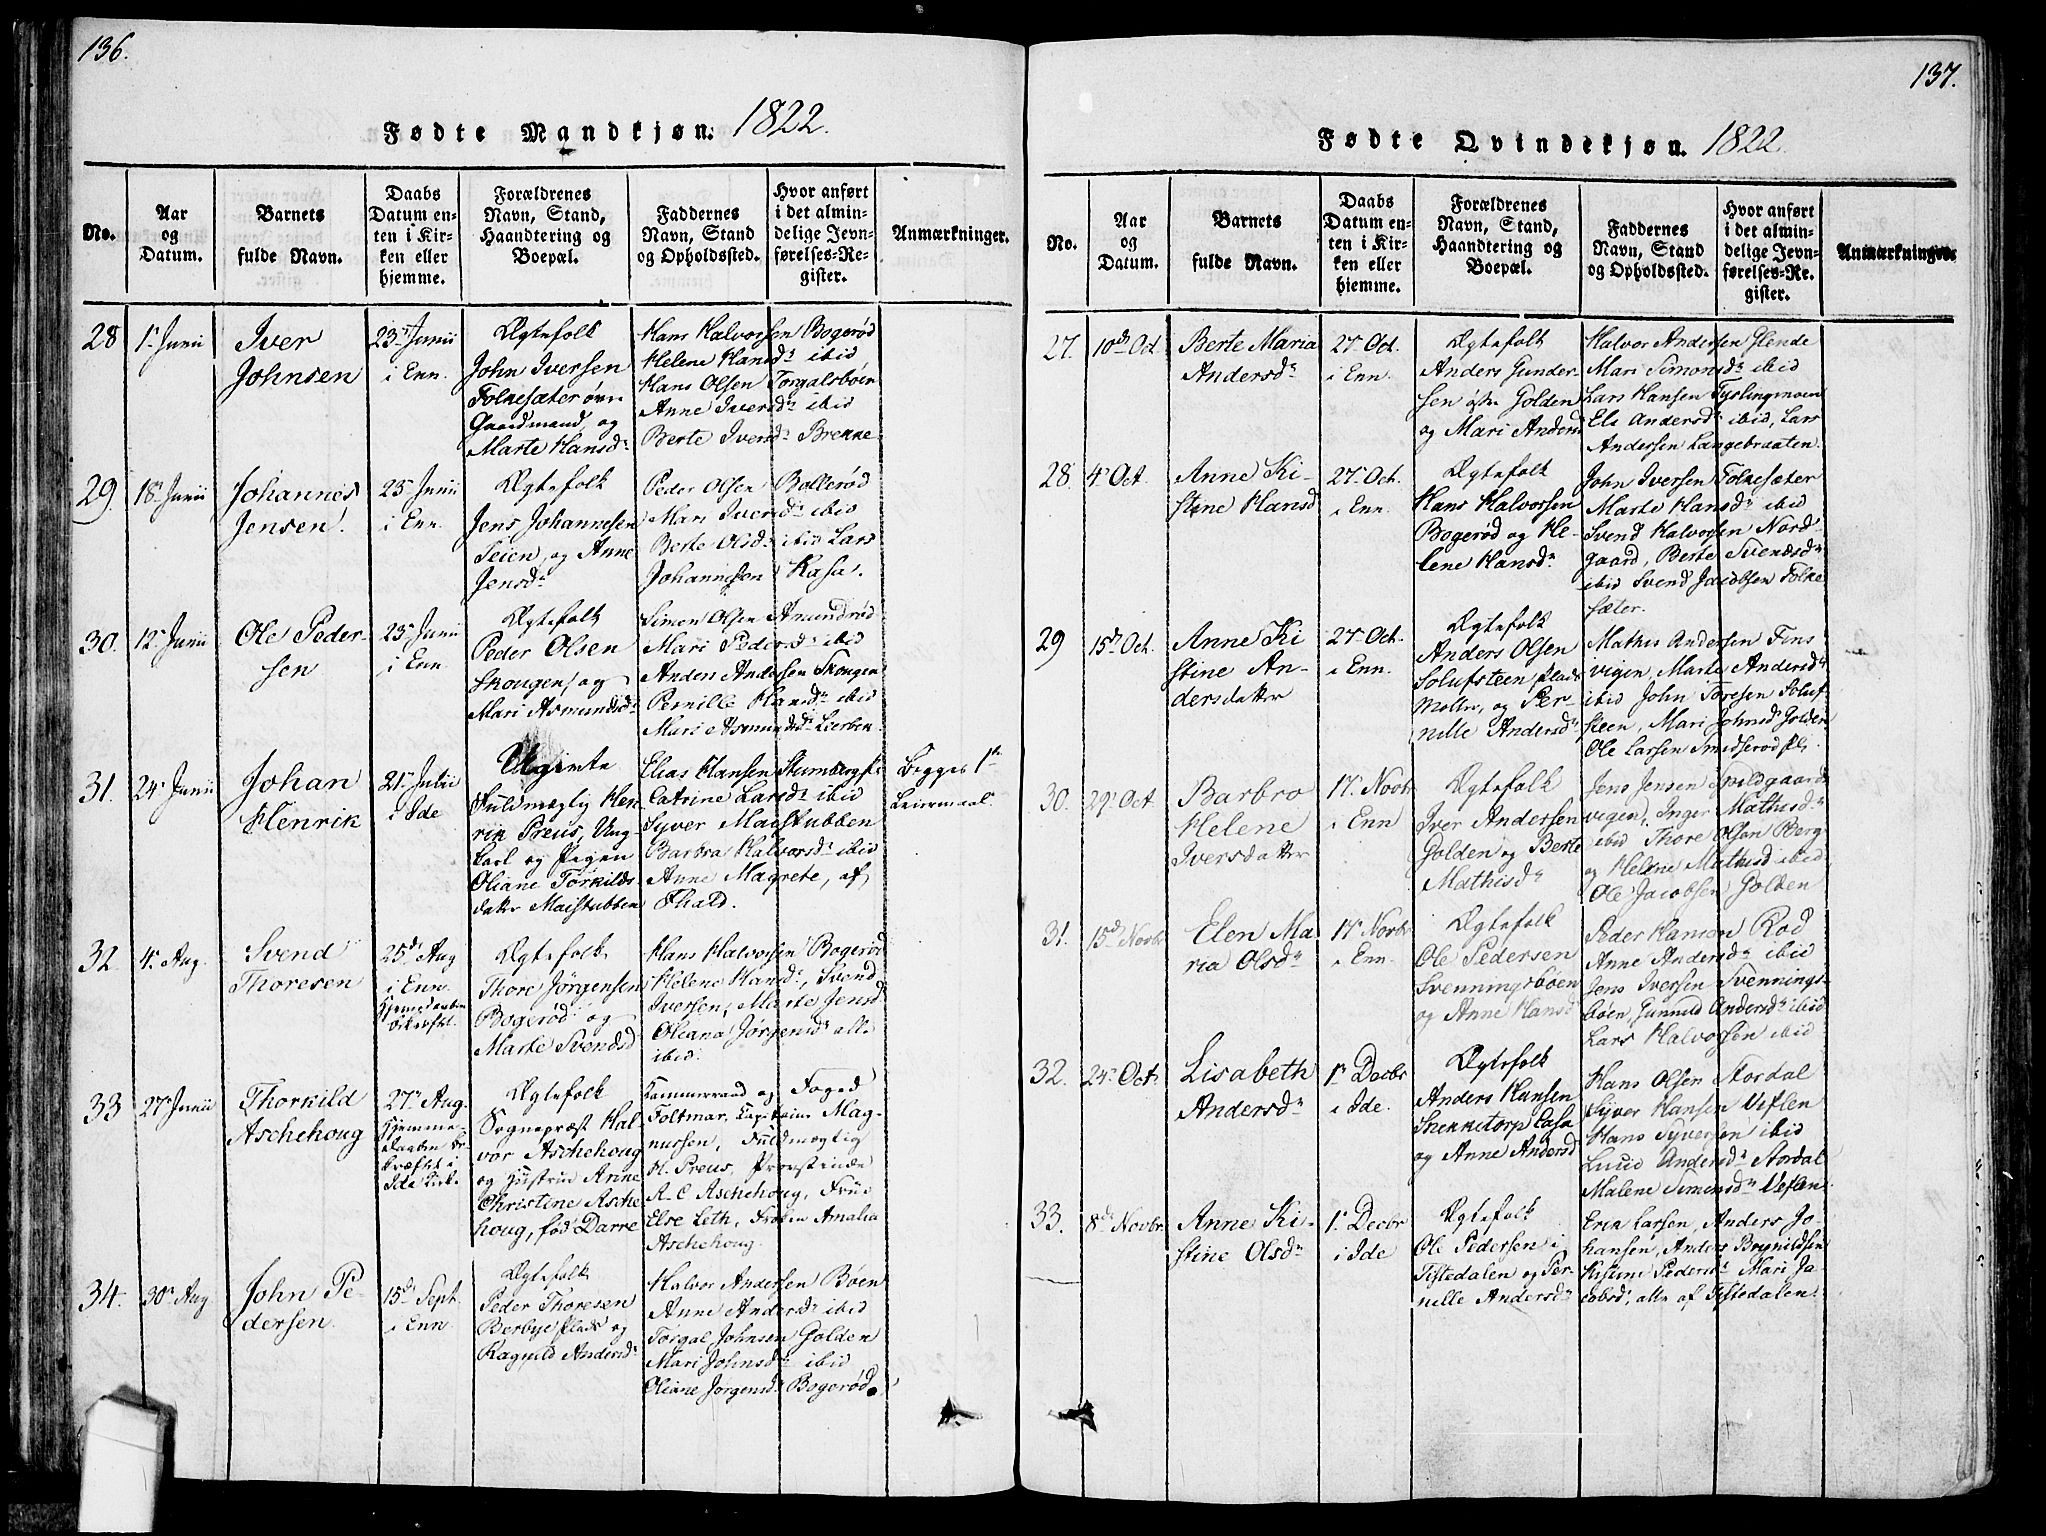 136.
Fødte Mandkjøn. 1822.
No.
Aar
og
Datum.
Barnets
fulde Navn.
Daabs
Datum en-
ten i Kir-
ken eller
hjemme.
Forældrenes
Navn, Stand,
Haandtering og
Boepæl.
Faddernes
Navn, Stand
og Opholdssted.
Hvor anført
i det almin-
delige Jevn-
førelses-Re-
gister.
Anmærkninger.
28
1r Junii
Iver
Johnsen
23r Junii
i Enn.
Ægtefolk
John Iversen
Folkesæter øvre
Gaardmand, og
Marte Hansdr
Hans Halvorsen Bogerød
Helene Hansdr ibid
Hans Olsen Torgalsbøen
Anne Iversdr ibid
Berte Iversdr Brekke
29.
18r Junii
Johannes
Jensen.
23r Junii
i Enn.
Ægtefolk
Jens Johannesen
Seien, og Anne
Jensdr
Peder Olsen Bollerød
Mari Iversdr ibid
Berte Olsdr ibid Lars
Johannesen Kasa.
30.
12r Junii
Ole Peder-
sen
23r Junii
i Enn.
Ægtefolk
Peder Olsen
Skougen, og
Mari Asmundsdr
Simon Olsen Amundrød
Mari Pedersdr ibid
Anders Andersen Skougen
Pernille Hansdr ibid
Mari Asmundsdr Lierben
31.
24r Junii
Johan
Henrik
21r Julii
i Ide
Ugivte
Fuldmægtig Hen
rik Preus, Ung
karl og Pigen
Oliane Torkilds
datter Maistubben
Elias Hansen
Catrine Larsdr ibid
Syver Maistubben
Barbra Halvorsdr ibid
Anne Magrete, af
Fhald.
Begges 1te
Leiermaal.
32
4r Aug.
Svend
Thoresen
25d Aug
i Enn.
Hjemedaaben
Ægtefolk
Thore Jørgensen
Bogerød og
Marte Svendsd
Hans Halvorsen Bogerød
Helene Hansdr, Svend
Iversen, Marte Jensdr
Oliana Jørgensdr alle
ibid.
33
27r Junii
Thorkild
Aschehoug
27r Aug.
Hjemme-
daaben be-
kræftet i
Ide Kirke
Ægtefolk
Sognepræst Hal
vor Aschehoug
og Hustrue Anne
Christine Asche
houg, fød Darre
Kammerraad og Foged
Foltmar, Capitain Mag-
nussen, Fuldmægtig
H. Preus, Provstinde
A. C Aschehoug, Frue
Else Leth, Frøken Amalia
Aschehoug.
34.
30r Aug
John Pe
dersen.
15d Sept.
i Enn
Ægtefolk
Peder Thoresen
Berbye plads og
Ragnild Andersdr
Halvor Andersen Bøen
Anne Andersdr ibid
Torgal Johnsen Golden
Mari Johnsdr ibid
Oliane Jørgensd. Bogerød.
137.
Fødte Qvindekjøn. 1822.
No.
Aar
og
Datum.
Barnets
fulde Navn.
Daabs
Datum en-
ten i Kir-
ken eller
hjemme.
Forældrenes
Navn, Stand,
Haandtering og
Boepæl.
Faddernes
Navn, Stand
og Opholdssted.
Hvor anført
i det almin-
delige Jevn-
førelses-Re-
gister.
Anmærkninger.
27.
10d Oct.
Berte Maria
Andersdr
27 Oct.
i Enn.
Ægtefolk
Anders Gunder
sen østre Golden
og Mari Andersd
Halvor Andersen Hende
Mari Simonsdr ibid
Lars Hansen Tyslingmoen
Els Andersdr ibid, Lars
Andersen Langebraaten.
28.
4r Oct.
Anne Ki-
stine Hansd
27r Oct.
i Enn.
Ægtefolk
Hans Halvorsen
Bogerød og He-
lene Hansdr
John Iversen Folkesæter
Marte Hansdr ibid
Svend Halvorsen Nord-
gaard, Berte Svendsdr
ibid Svend Jacobsen Folke
sæter.
29
15d Oct.
Anne Ki
stine An-
dersdatter
27r Oct.
i Enn.
Ægtefolk
Anders Olsen
Solufsteen plads
og Per-
nille Andersdr
Mathis Andersen Fins
vigen, Marte Andersdr
ibid John Toresen Soluf
steen, Mari Johnsd Golden
Ole Larsen Smidserød pl.
30.
29r Oct
Barbro
Helene
Iversdatter
17r Novbr
i Enn
Ægtefolk
Iver Andersen
Golden og Berte
Mathisdr
Jens Jensen
vigen, Inger Mathisdr
ibid Thore Olsen Berg
og Helene Mathisd ibid
Ole Jacobsen Golden
31.
15d Novbr
Elen Ma
ria Olsdr
17r Novbr
i Enn.
Ægtefolk
Ole Pedersen
Svenningsbøen
og Anne Hansd
Peder Hansen Rød
Anne Andersdr ibid
Jens Iversen Svennings-
bøen, Gunnild Andersdr ibid
Lars Halvorsen ibid
32.
24r Oct.
Lisabeth
Andersdr
1r Decbr
i Ide.
Ægtefolk
Anders Hansen
Snekketorp Casa
og Anne Andersd
Hans Olsen Stordal
Syver Hansen Veflen
Hans Syversen ibid
Lucie Andersdr Stordal
Malene Simensdr Veflen.
33.
8d Novbr
Anne Ki-
stine Olsdr
1r Decbr
i Ide
Ægtefolk
Ole Pedersen i
Tistedalen og Per
nille Andersdr
Erik Larsen, Anders Jo-
hansen, Anders Brynildsen
Kistine Pedersdr Mari Ja
cobsd, alle af Tistedalen.